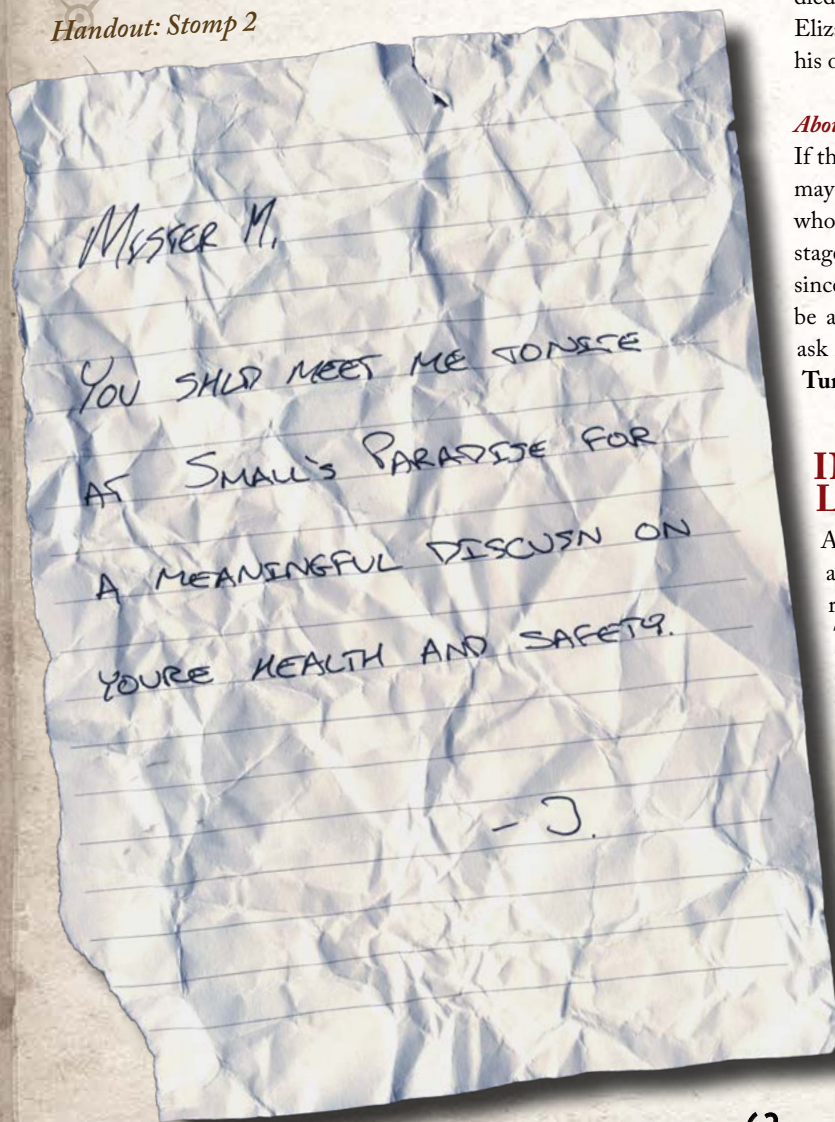 Handout: Stomp 2
MISTER M,
YOU SHLD MEET ME TONITE
AT SMALL'S PARADISE FOR
A MEANINGFUL DISCUSN ON
YOURE HEALTH AND SAFETY.
- J.
Eliz
his o
Abo
If th
may
who
stag
since
be a
ask
Tur
A
a